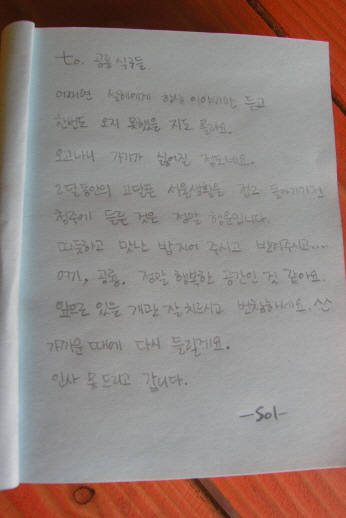 to. 공룡 식구들.
어쩌면 설해에게 항상 이야기만 듣고
한번도 오지 못했을 지도 몰라요.
오고나니 가기가 싫어질 정도네요.
2달동안의 고달픈 서울생활을 접고 돌아가기전
청주에 들른 것은 정말 행운입니다.
따듯하고 맛난 밥 지어 주시고 반겨주시고....
여기, 공룡. 정말 행복한 공간인 것 같아요.
앞으로 있을 개관 잘 치르시고 번창하세요. ^^
가까운 때에 다시 들릴게요.
인사 못 드리고 갑니다.
-Sol-